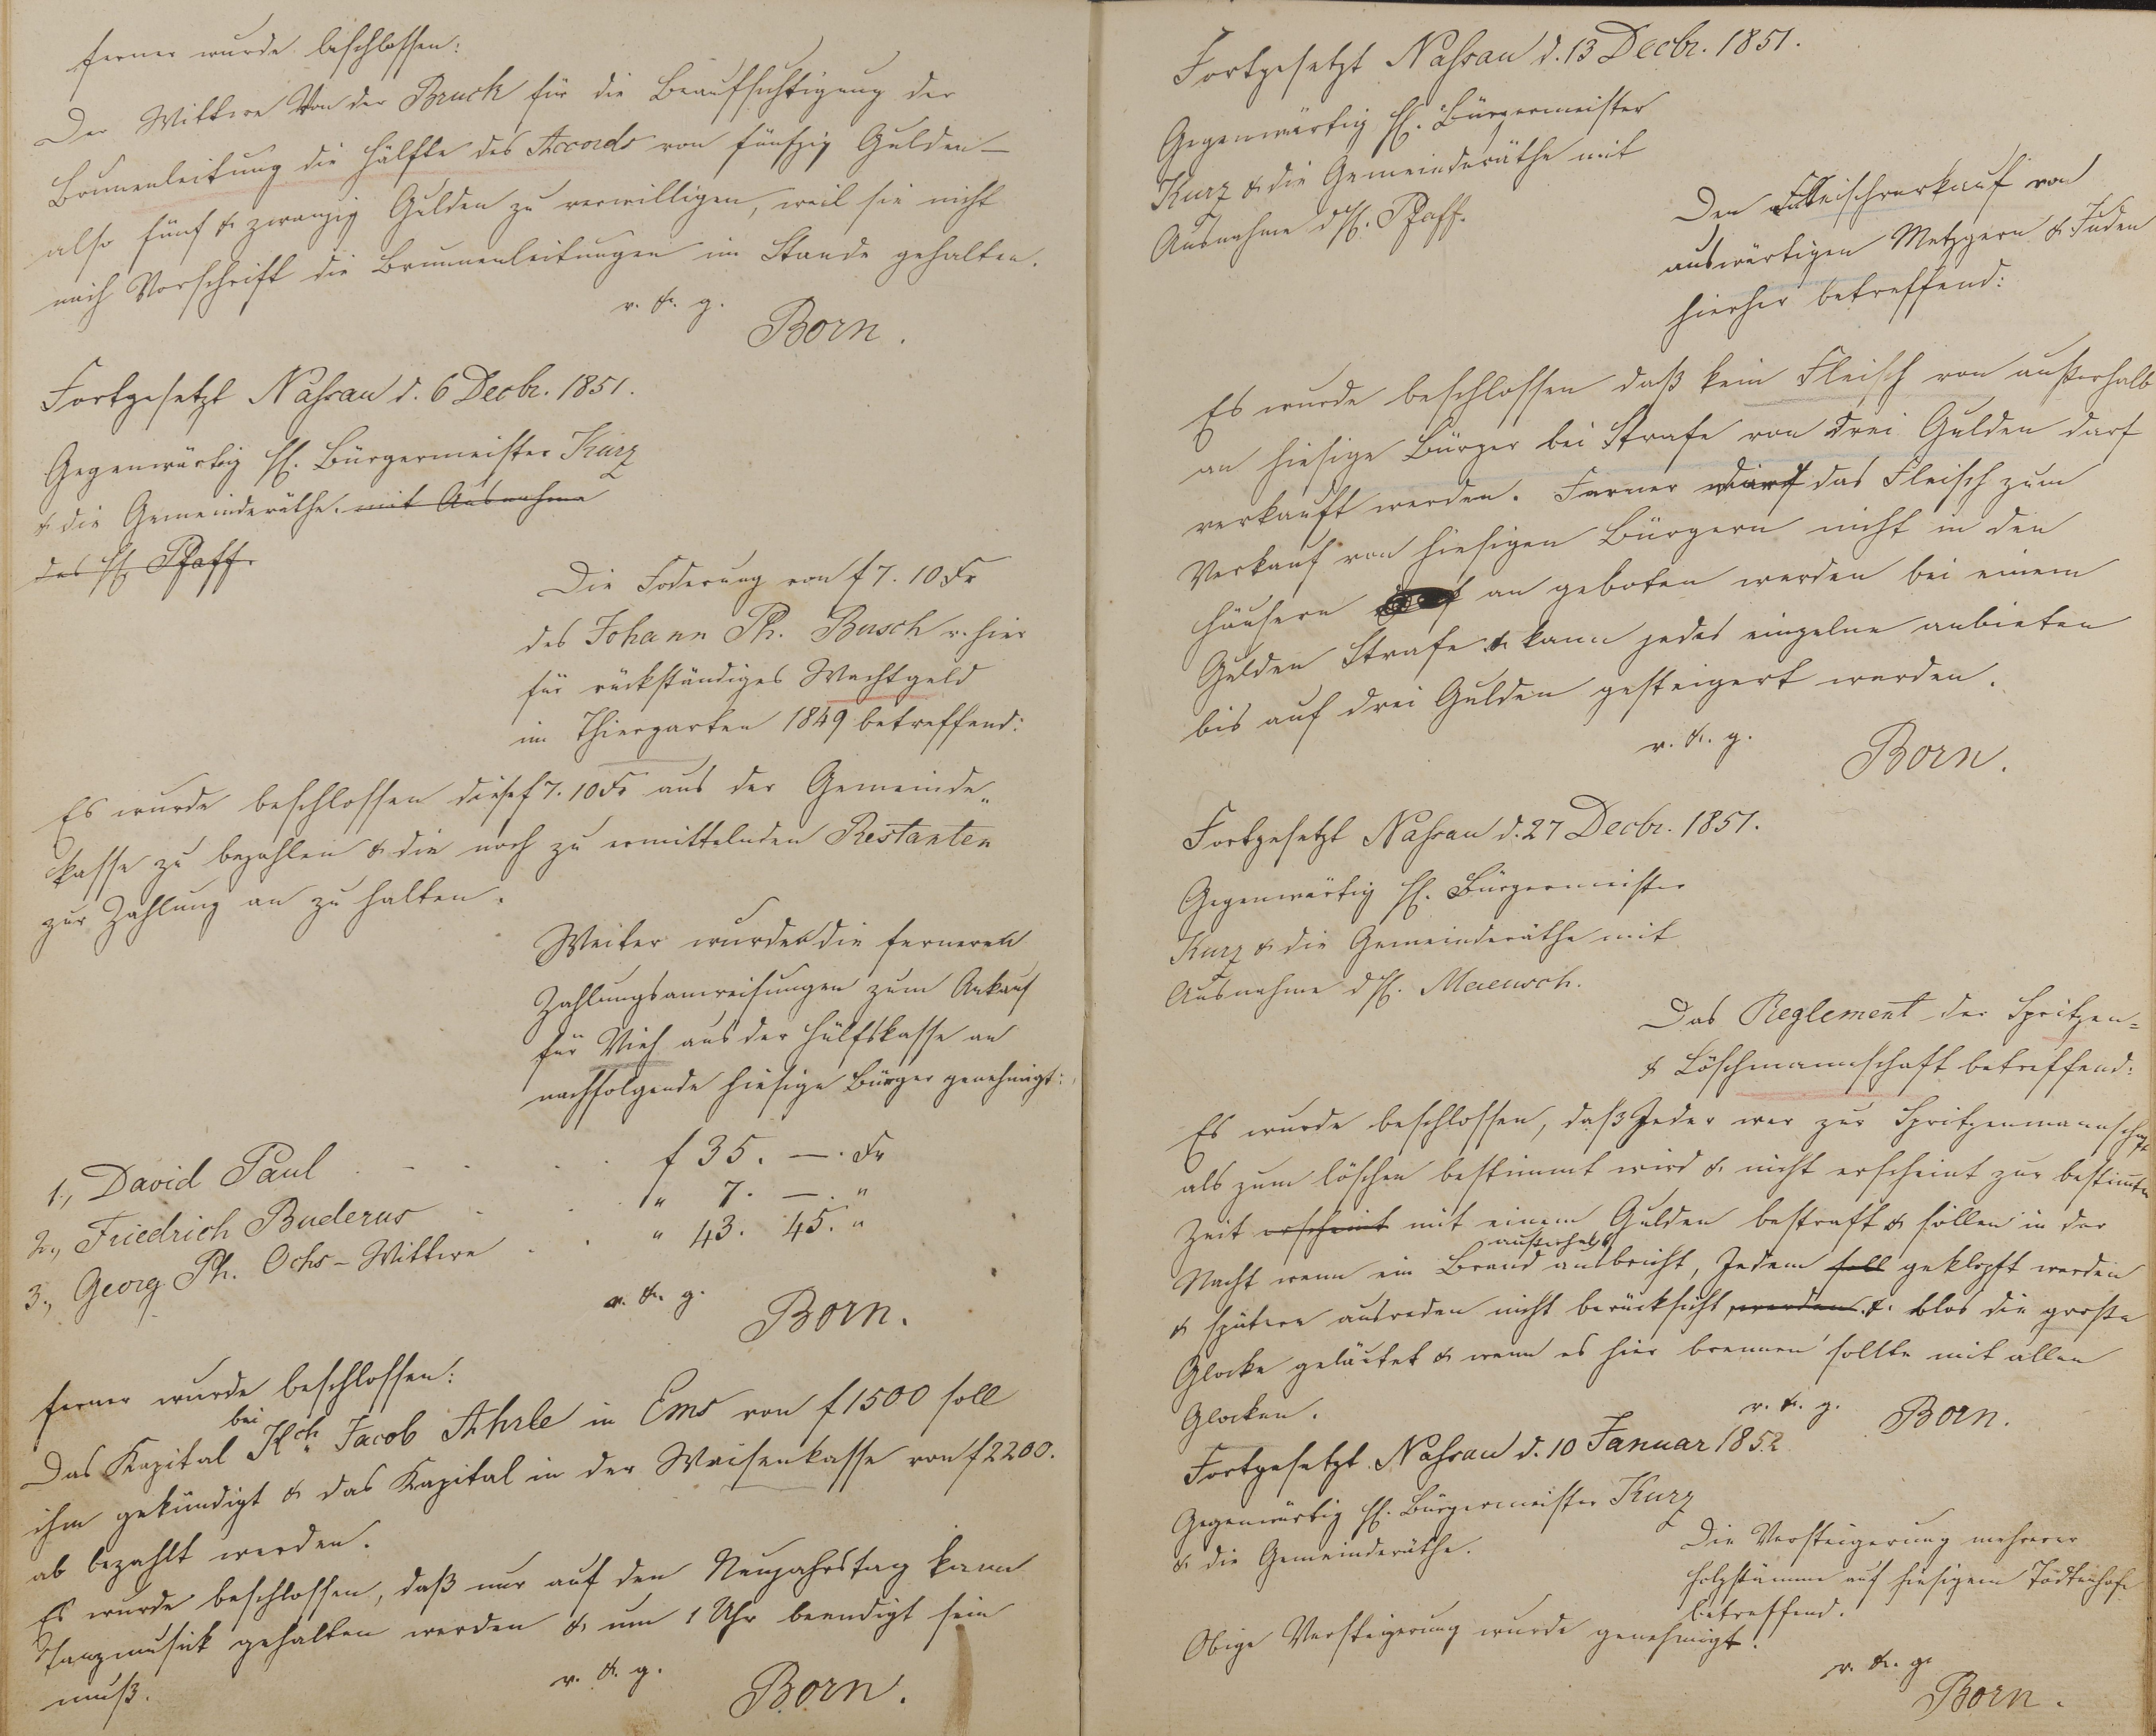 ferner wurde beschlossen:
Der Wittwe Von der Bruck für die Beaufsichtigung der
Brunnenleitung die Hälfte des Accords von fünfzig Gulden –
also fünf & zwanzig Gulden zu verwilligen, weil sie nicht
nach Vorschrift die Brunnenleitungen im Stande gehalten.
v. & g.
Born.
Fortgesetzt Nassau d. 6 Decbr. 1851.
Gegenwärtig H. Bürgermeister Kurz
& die Gemeinderäthe. mit Ausnahme
des H. Pfaff.
Die Foderung von f 7. 10 Kr
des Johann Ph. Busch v. hier
für rückständiges Wachtgeld
im Thiergarten 1849 betreffend:
Es wurde beschlossen diese f 7. 10 Kr aus der Gemeinde„
kasse zu bezahlen & die noch zu ermittelnden Restanten
zur Zahlung an zu halten.
Weiter wurden die ferneren
Zahlungsanweisungen zum Ankauf
für Vieh aus der Hülfskasse an
nachfolgende hiesige Bürger genehmigt:
1., David Paul . . . . f 35. —. Kr
2., Friedrich Buderus . . . " 7. —. "
3., Georg Ph. Ochs – Wittwe . . " 43. 45. "
v. & g.
Born.
ferner wurde beschlossen:
Das Kapital bei Hch. Jacob Ahrle in Ems von f 1500 soll
ihm gekündigt & das Kapital in der Waisenkasse von f 2200.
ab bezahlt werden.
Es wurde beschlossen, daß nur auf den Neujahrstag kann
Tanzmusick gehalten werden & um 1 Uhr beendigt sein
muß.
v. & g.
Born.
Fortgesetzt Nassau d. 13 Decbr. 1851.
Gegenwärtig H. Bürgermeister
Kurz & die Gemeinderäthe mit
Ausnahme d H. Pfaff.
Den Fleischverkauf von
auswärtigen Metzgern & Juden
hierher betreffend:
Es wurde beschlossen daß kein Fleisch von außerhalb
an hiesige Bürger bei Strafe von drei Gulden darf
verkauft werden. Ferner darf das Fleisch zum
Verkauf von hiesigen Bürgern nicht in den
Häusern an geboten werden bei einem
Gulden Strafe & kann jedes einzelne anbieten
bis auf drei Gulden gesteigert werden.
v. & g.
Born.
Fortgesetzt Nassau d. 27 Decbr. 1851.
Gegenwärtig H. Bürgermeister
Kurz & die Gemeinderäthe mit
Ausnahme d H.
Das Reglement der Spritzen=
& Löschmannschaft betreffend:
Es wurde beschlossen, daß Jeder wer zur Spritzenmannschaft
als zum löschen bestimmt wird & nicht erscheint zur bestimmten
Zeit erscheint mit einem Gulden bestraft & sollen in der
Nacht wenn ein Brand außerhalb ausbricht, Jedem soll geklopft werden
& spätere ausreden nicht berücksicht werden. & blos die große
Glocke geläutet & wenn es hier brennen sollte mit allen
Glocken.
v. & g.
Born.
Fortgesetzt Nassau d. 10 Januar 1852
Gegenwärtig H. Bürgermeister Kurz
& die Gemeinderäthe.
Die Versteigerung mehrerer
Holzstämme auf hiesigem Todtenhofe
betreffend.
Obige Versteigerung wurde genehmigt.
v. & g.
Born.